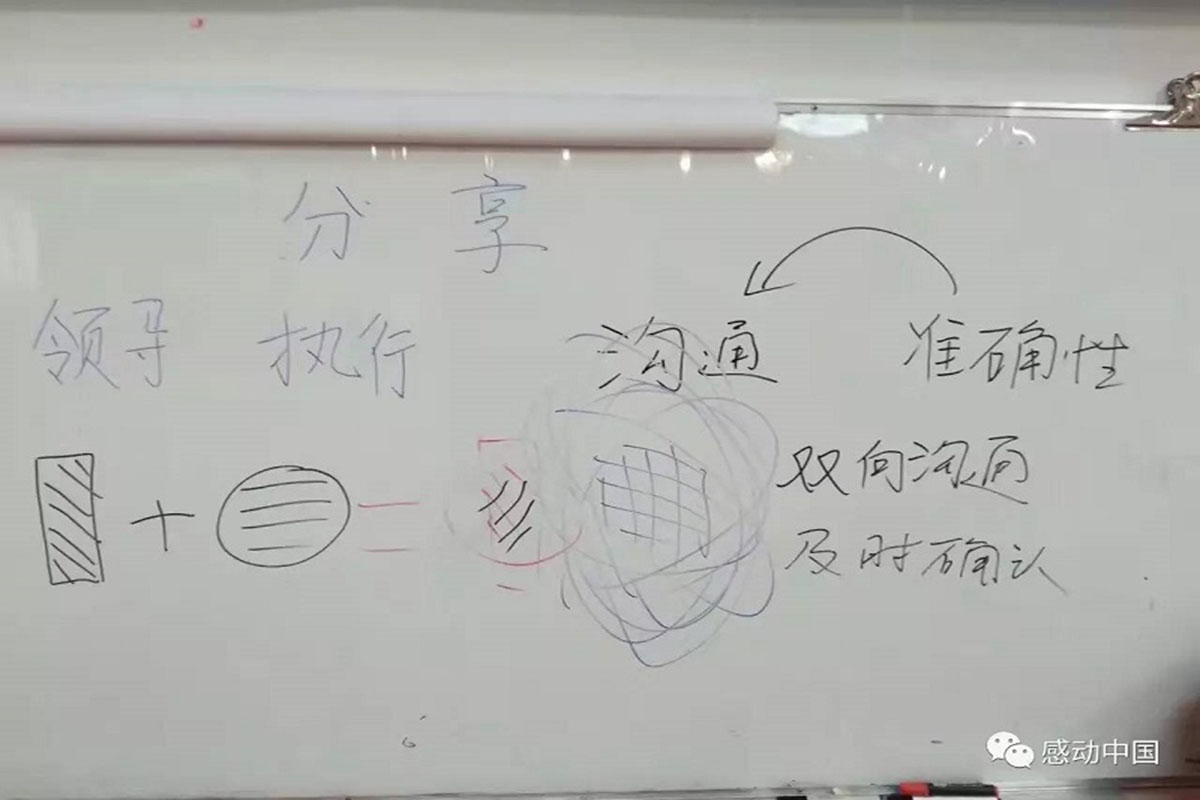 分 享
领导 执行 沟通 准确性
双向沟通
及时确认
感动中国